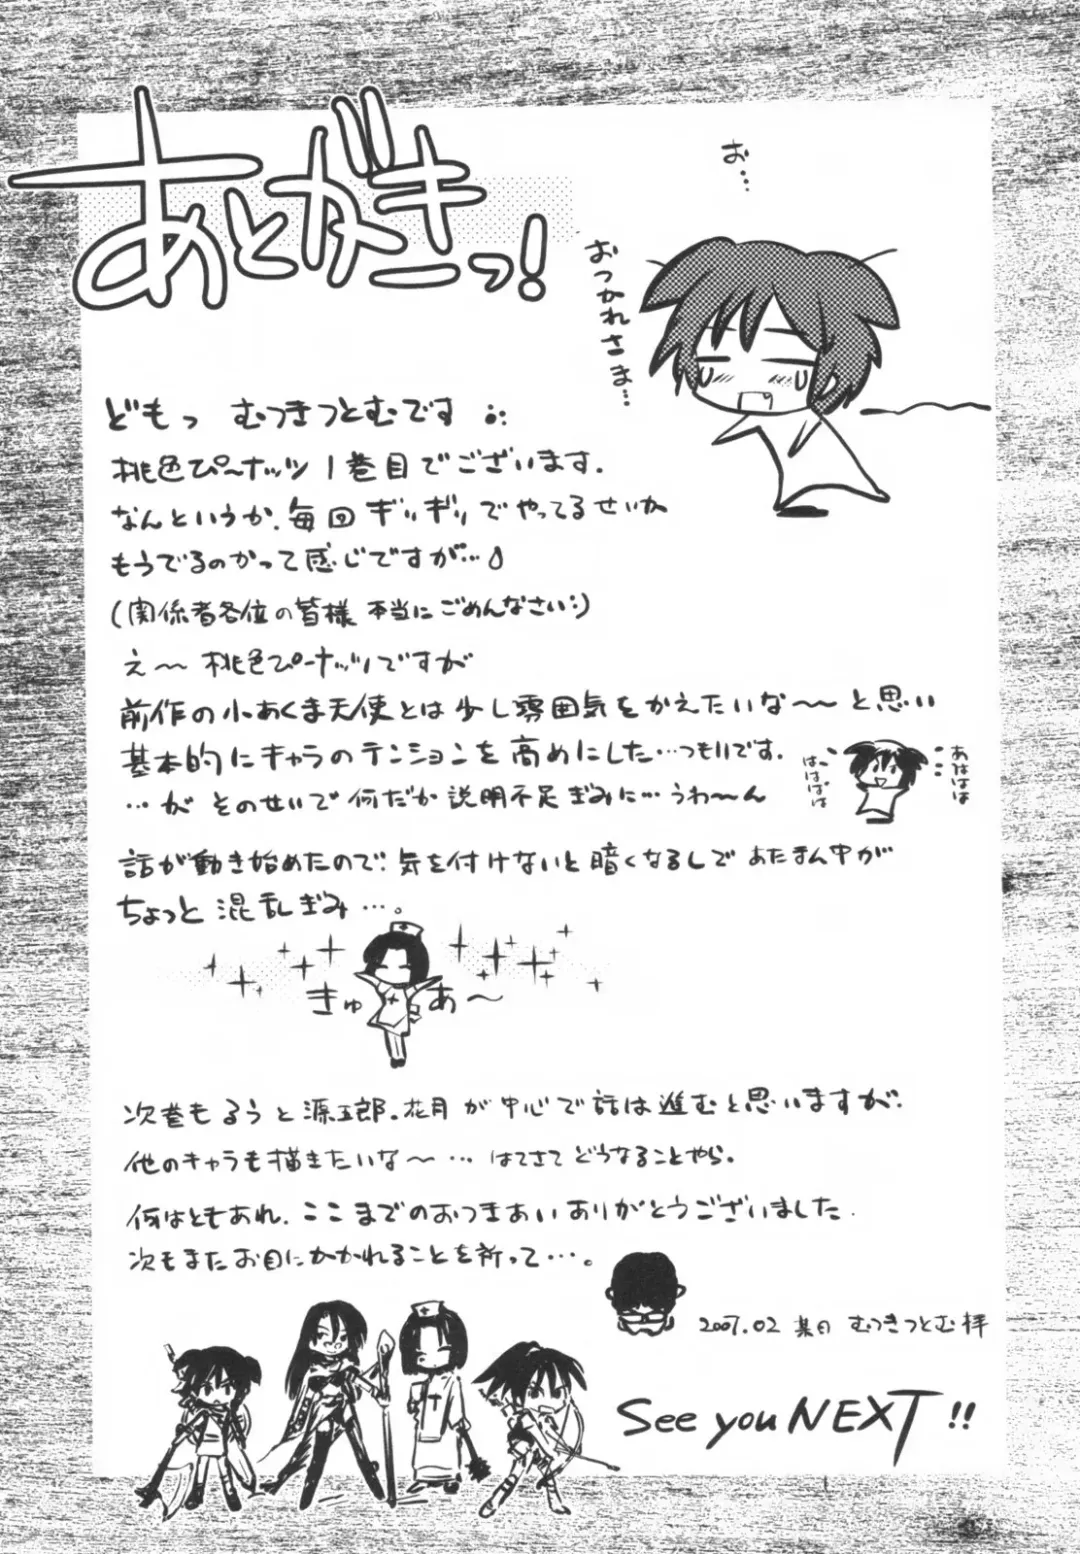 あとがきっ!
お…
おつかれさま…
どもっ むつきつとむです
桃色ぴーナッツ1巻目でございます.
なんというか、毎回ギリギリでやってるせいか
もうでるのかって感じですが…
(関係者各位の皆様 本当にごめんなさい)
え〜 桃色ぴーナッツですが
前作の小あくま天使とは少し雰囲気をかえたいな〜〜と思い
基本的にキャラのテンションを高めにした…つもりです.
あははは
はははは
…が そのせいで何だか説明不足ぎみに…うわ〜ん
話が動き始めたので、気を付けないと暗くなるしで あたまん中が
ちょっと混乱ぎみ…。
きゅあ〜
次巻もるうと源五郎、花月が中心で話は進むと思いますが、
他のキャラも描きたいな〜… はてさてどうなることやら。
何はともあれ、ここまでのおつきあいありがとうございました.
次もまたお目にかかれることを祈って…。
2007.02 某日 むつきつとむ拝
See you NEXT!!